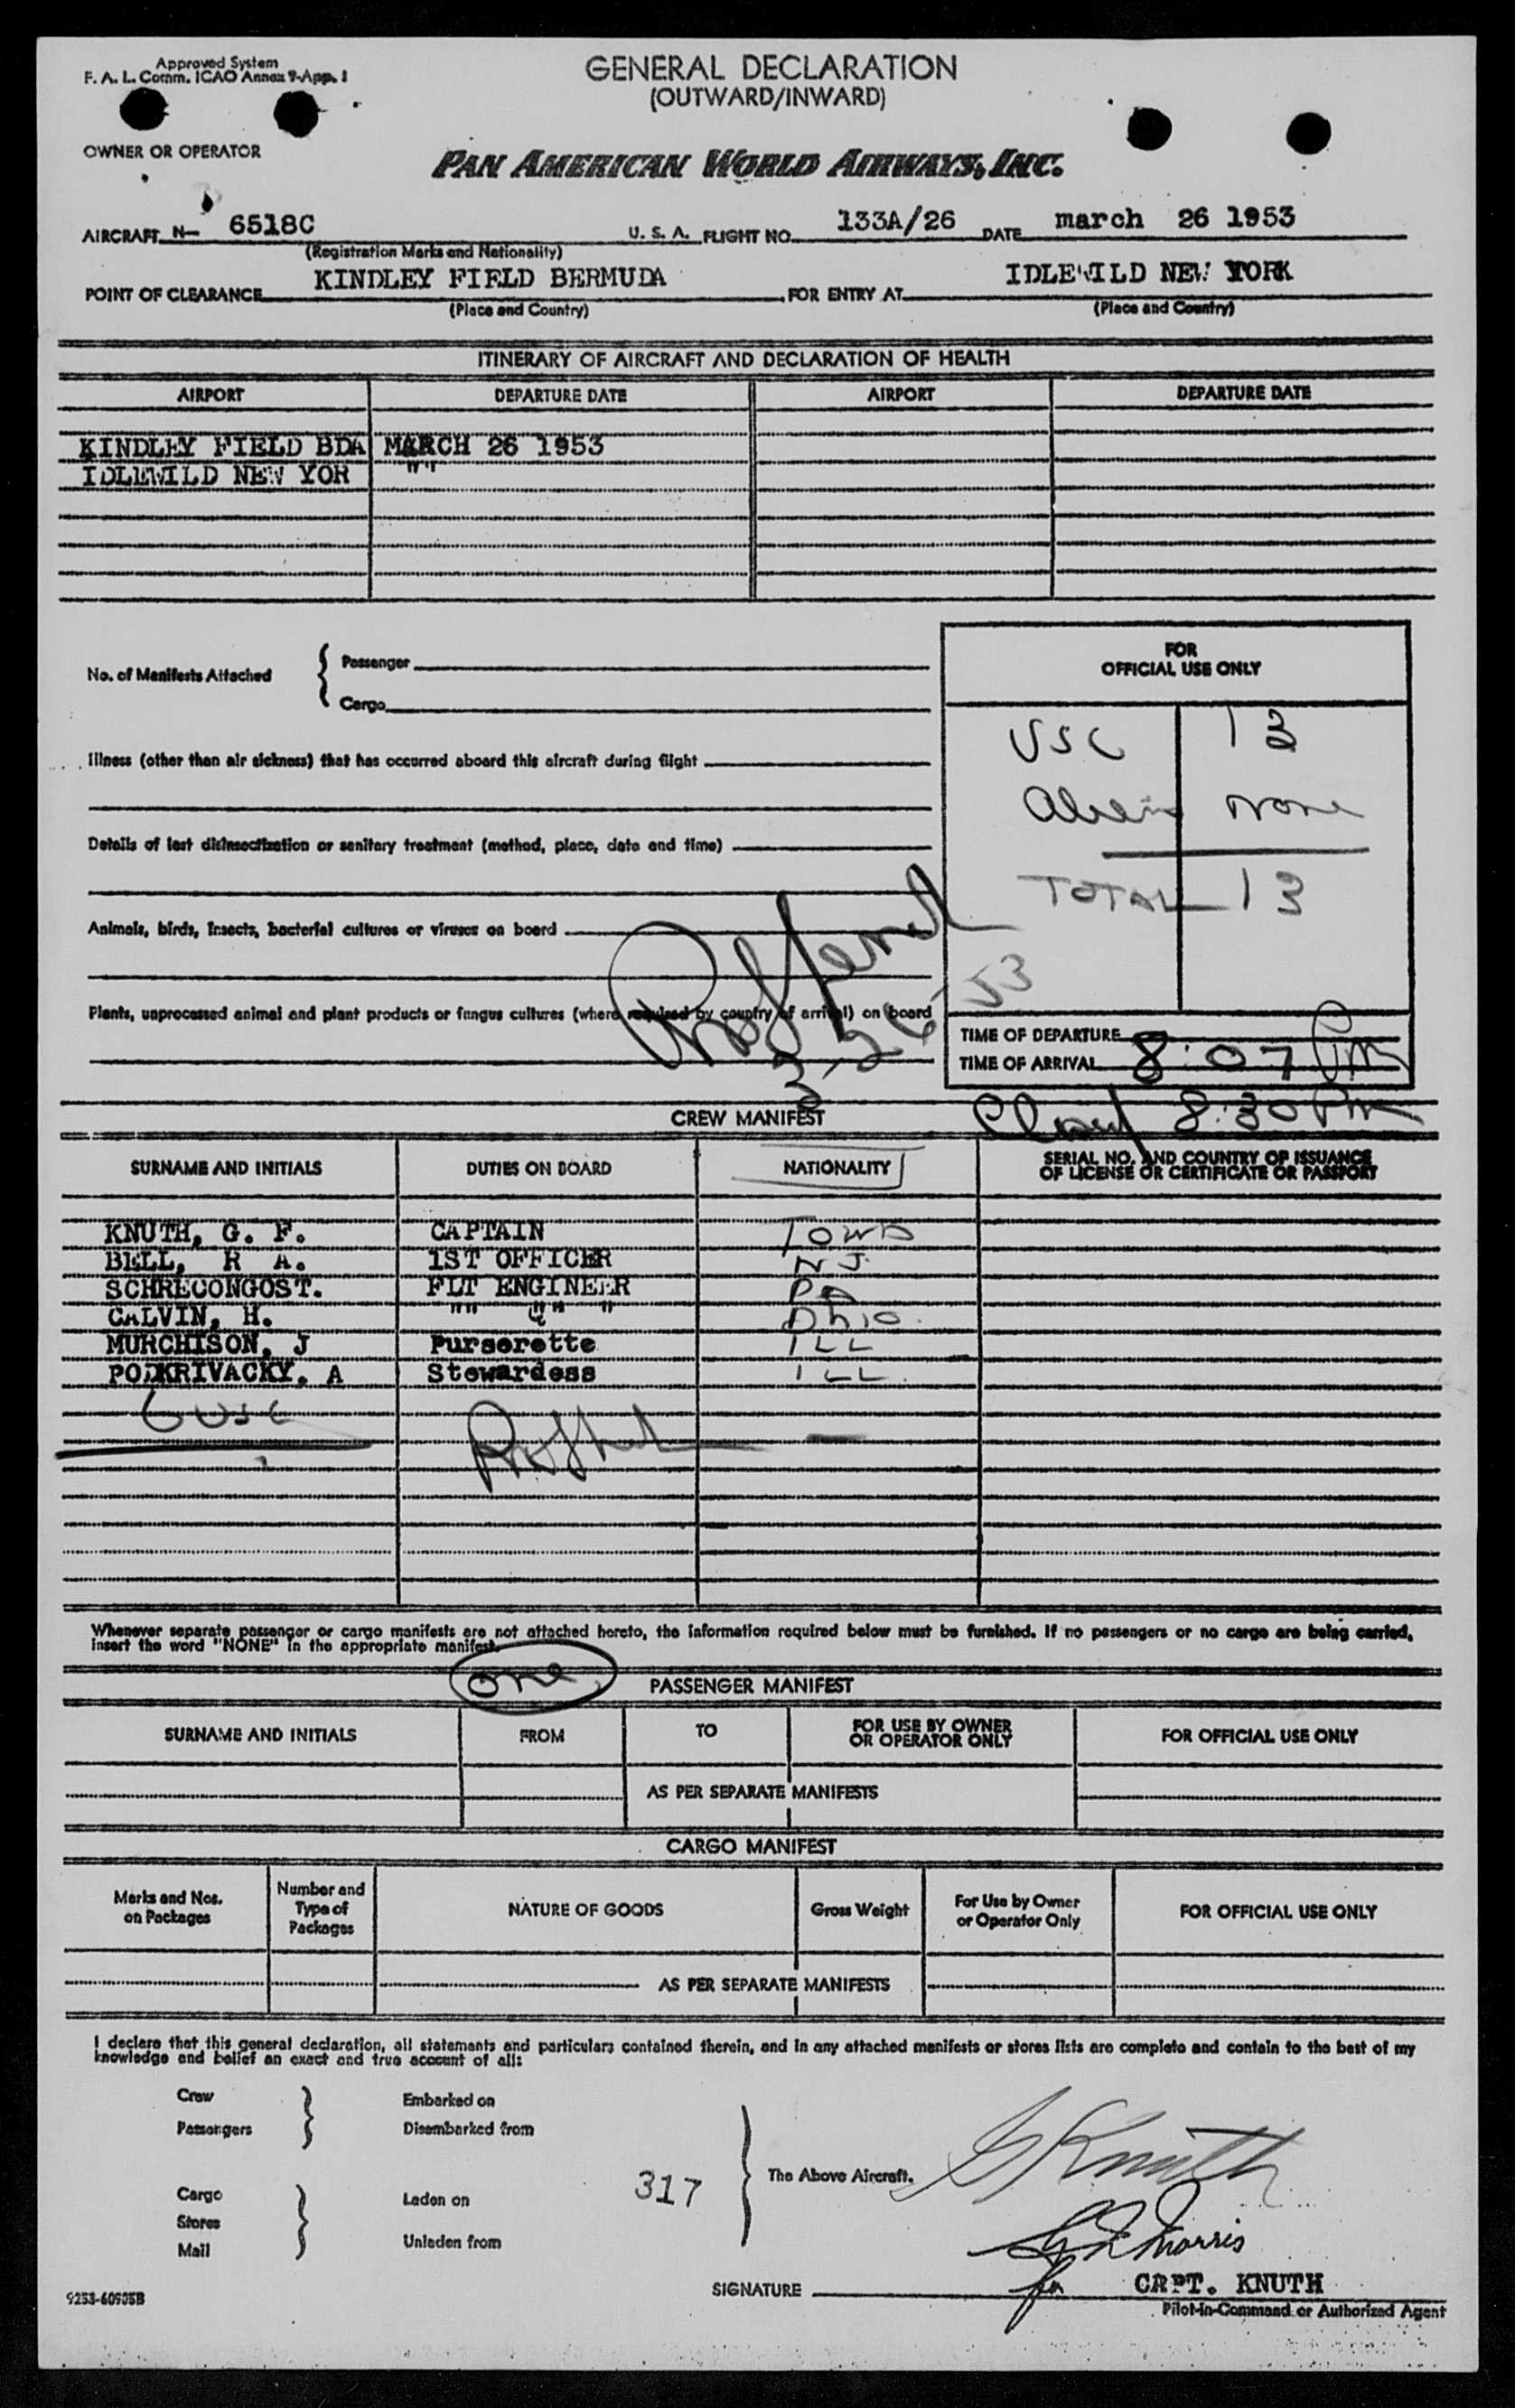 Approved System
F. A. L. Comm. ICAO Annex 9-App. 1
GENERAL DECLARATION
(OUTWARD/INWARD)
OWNER OR OPERATOR
PAN AMERICAN WORLD AIRWAYS, INC.
AIRCRAFT N- 6518C U. S. A. FLIGHT NO. 133A/26 DATE march 26 1953
(Registration Marks and Nationality)
POINT OF CLEARANCE KINDLEY FIELD BERMUDA FOR ENTRY AT IDLEWILD NEW YORK
(Place and Country) (Place and Country)
ITINERARY OF AIRCRAFT AND DECLARATION OF HEALTH
AIRPORT DEPARTURE DATE AIRPORT DEPARTURE DATE
KINDLEY FIELD BDA MARCH 26 1953
IDLEWILD NEW YOR ""
No. of Manifests Attached { Passenger
Cargo
Illness (other than air sickness) that has occurred aboard this aircraft during flight
Details of last disinsectization or sanitary treatment (method, place, date and time)
Animals, birds, insects, bacterial cultures or viruses on board
Plants, unprocessed animal and plant products or fungus cultures (where required by country of arrival) on board
3-26-53
FOR
OFFICIAL USE ONLY
USC 13
Alien None
TOTAL 13
TIME OF DEPARTURE
TIME OF ARRIVAL 8:07 PM
Closed 8:30 PM
CREW MANIFEST
SURNAME AND INITIALS DUTIES ON BOARD NATIONALITY SERIAL NO. AND COUNTRY OF ISSUANCE
OF LICENSE OR CERTIFICATE OR PASSPORT
KNUTH, G. F. CAPTAIN Iowa
BELL, R A. 1ST OFFICER NJ
SCHRECONGOST. FLT ENGINEER PA
CALVIN, H. "" "" " Ohio
MURCHISON, J Purserette ILL
PODKRIVACKY. A Stewardess ILL.
6 USC
Whenever separate passenger or cargo manifests are not attached hereto, the information required below must be furnished. If no passengers or no cargo are being carried,
insert the word "NONE" in the appropriate manifest.
one PASSENGER MANIFEST
SURNAME AND INITIALS FROM TO FOR USE BY OWNER
OR OPERATOR ONLY FOR OFFICIAL USE ONLY
AS PER SEPARATE MANIFESTS
CARGO MANIFEST
Marks and Nos.
on Packages Number and
Type of
Packages NATURE OF GOODS Gross Weight For Use by Owner
or Operator Only FOR OFFICIAL USE ONLY
AS PER SEPARATE MANIFESTS
I declare that this general declaration, all statements and particulars contained therein, and in any attached manifests or stores lists are complete and contain to the best of my
knowledge and belief an exact and true account of all:
Crew
Passengers
Embarked on
Disembarked from
Cargo
Stores
Mail
Laden on
Unladen from
317
The Above Aircraft.
G Knuth
Morris
SIGNATURE for CAPT. KNUTH
Pilot-in-Command or Authorized Agent
9253-60905B